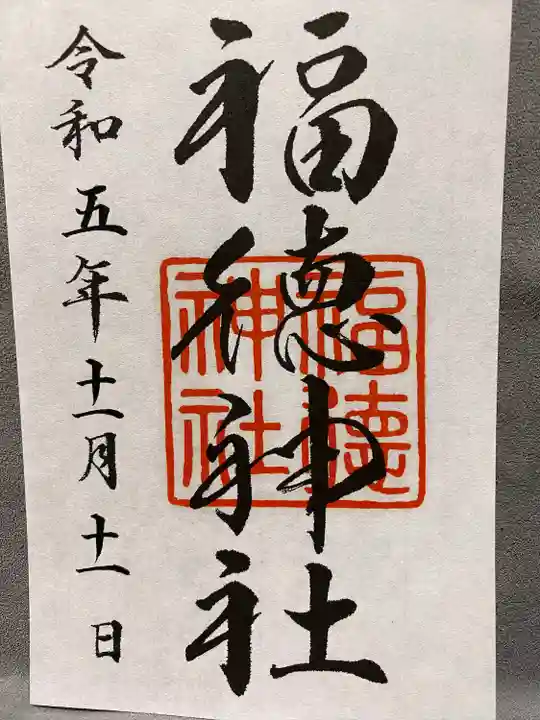 福徳神社
福徳
神社
令和五年十一月十一日